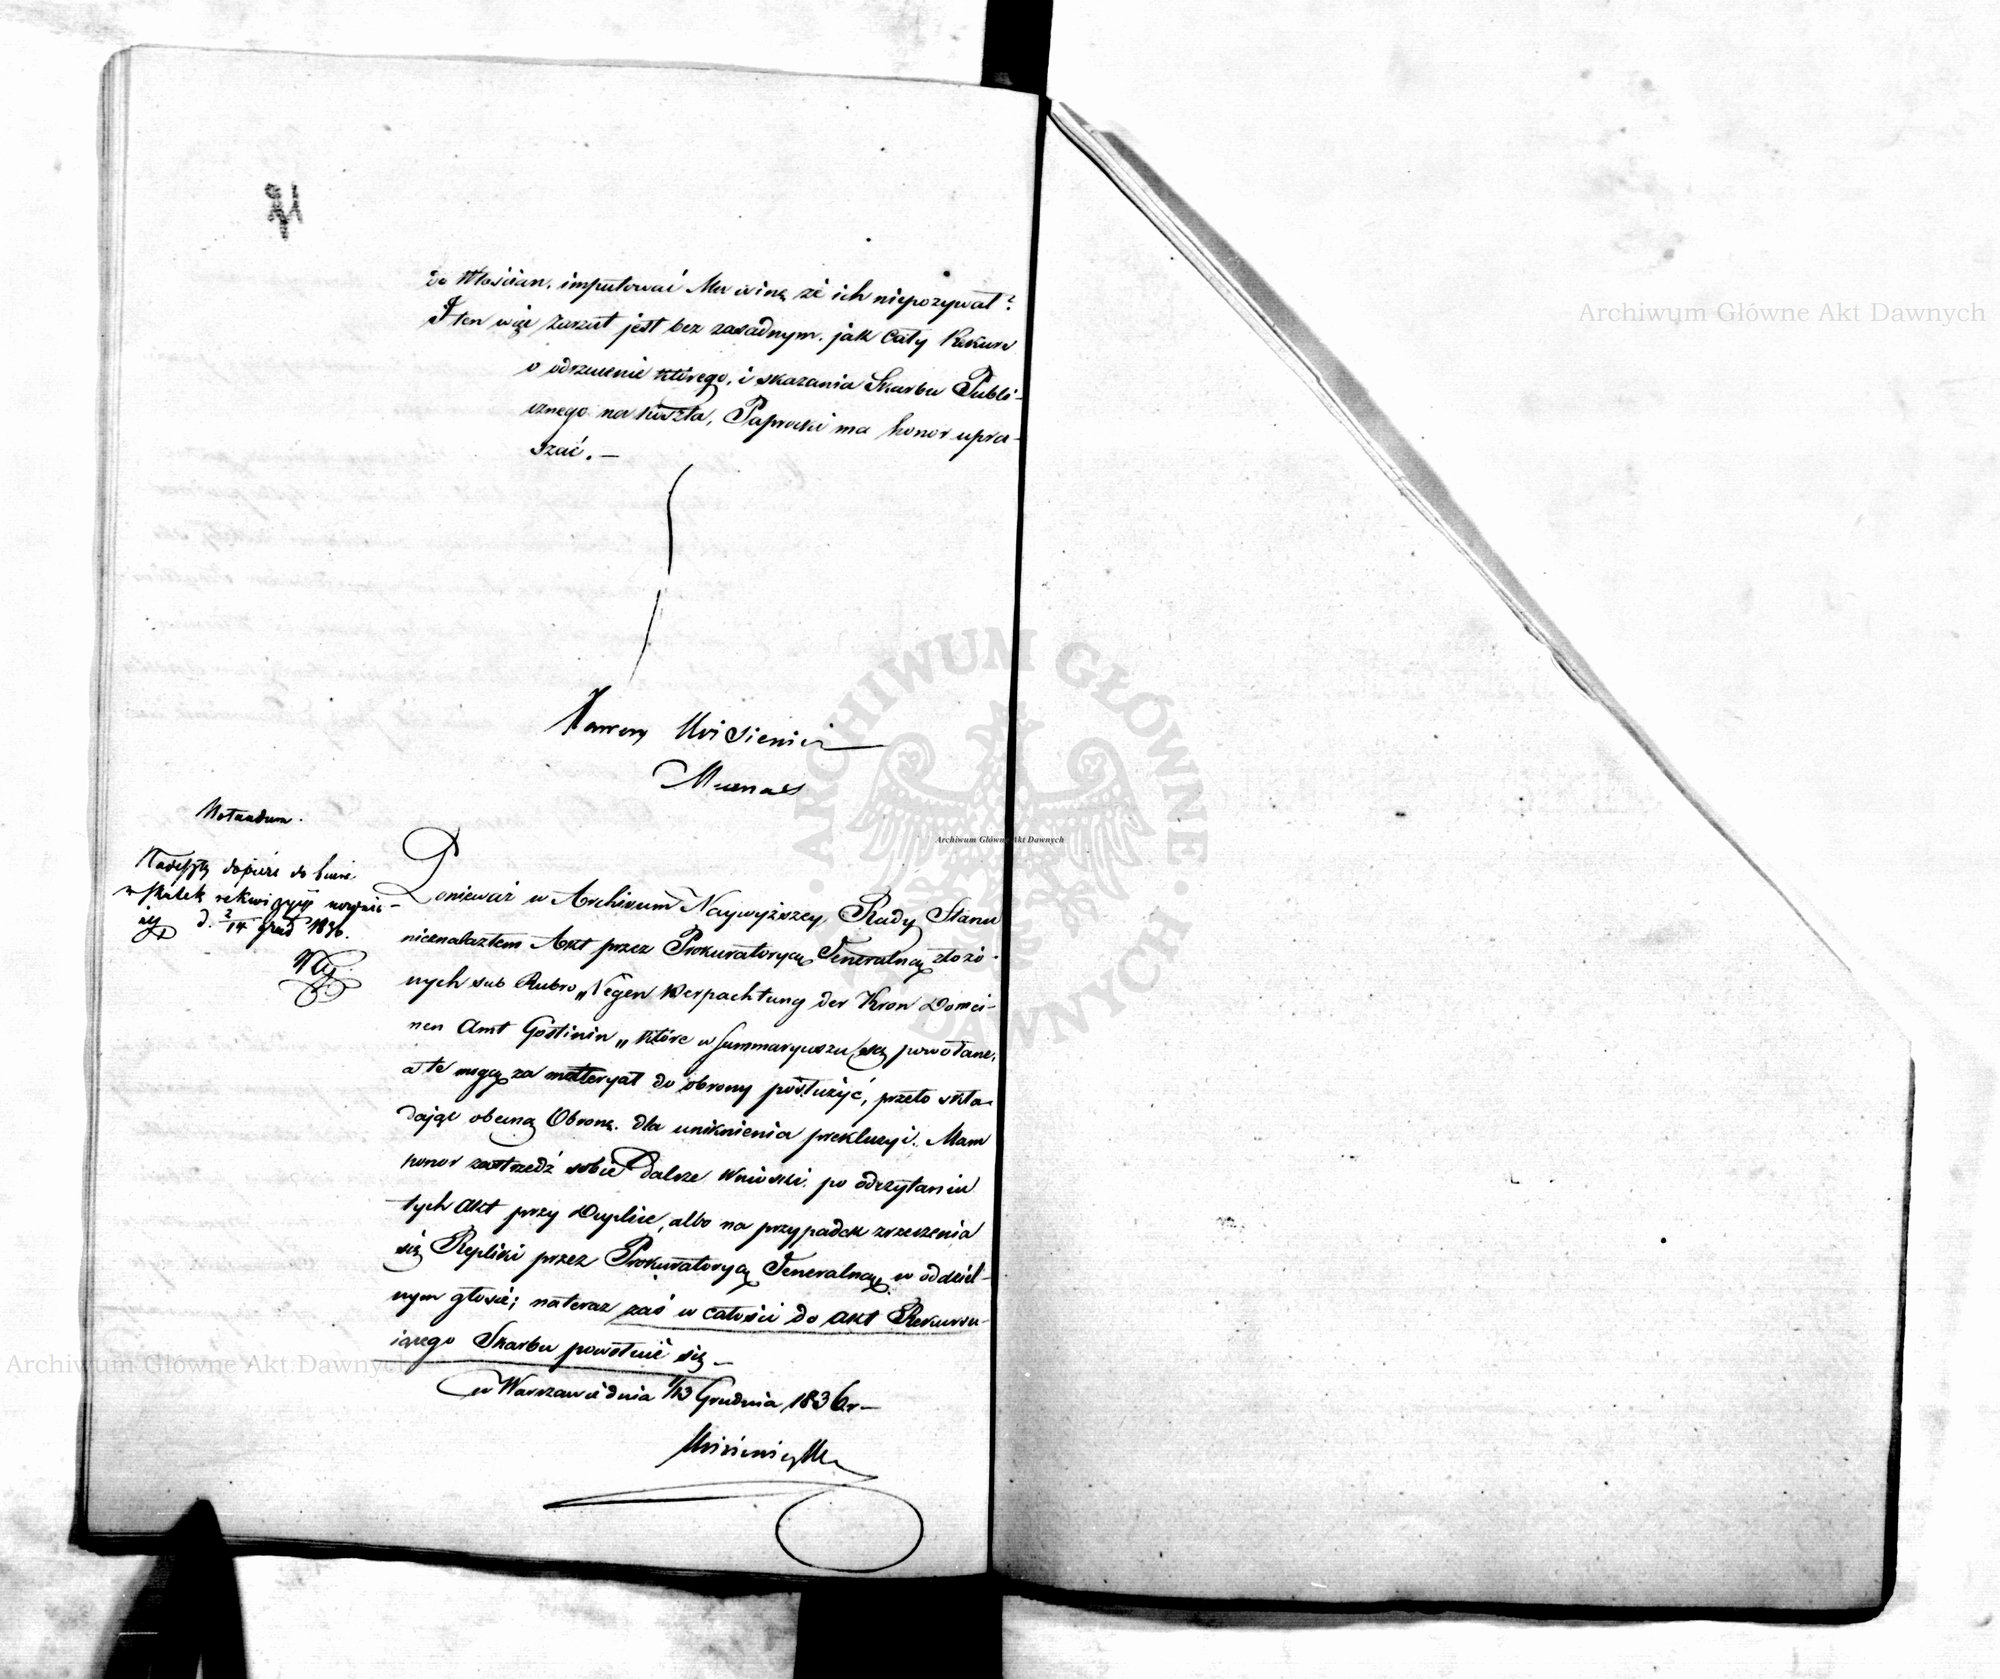 do Włościan. imputować Mu winę że ich niepozywał?
I ten więc Zarzut jest bez zasadnym. jak cały Rekurs
o odrzucenie którego, i skazania Skarbu Publi-
cznego na koszta, Paprocki ma honor upra-
szać. —
Mecenas
Notandum.
Nadeszły dopiero do
w skutek rekwizycyi
d. 2/14 Grud 1836.
Ponieważ w Archivum Naywyższey Rady Stanu
nieznalazłem Akt przez Prokuratoryą Generalną złożo-
nych sub Rubro „Wegen Verpachtung der Kron Domei-
nen Amt Gostinin„ które w Summaryuszu są powołane,
a te mogą za materyał do obrony posłużyć, przeto skła-
dając obecną Obronę. dla uniknienia prekluzyi. Mam
honor zastrzedz sobie dalsze Wnioski. po odczytaniu
tych Akt przy Duplice, albo na przypadek zrzeczenia
się Repliki przez Prokuratoryą Generalną w oddziel-
nym głosie; nateraz zaś w całości do akt Rekursu-
iącego Skarbu powołuie się —
w Warszawie dnia 1/13 Grudnia 1836 r —
Archiwum Główne Akt Dawnych
Archiwum Główne Akt Dawnych
ARCHIWUM GŁÓWNE AKT DAWNYCH
Archiwum Główne Akt Dawnych